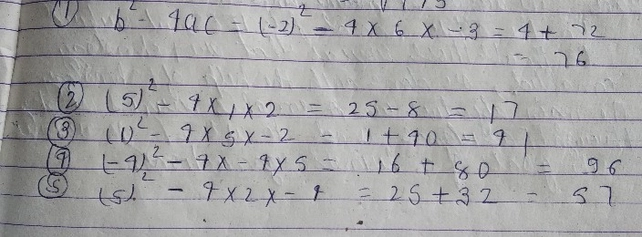 ① b² - 4ac = (-2)² - 4 × 6 × -3 = 4 + 72
= 76
② (5)² - 4 × 1 × 2 = 25 - 8 = 17
③ (1)² - 4 × 5 × -2 = 1 + 40 = 41
④ (-4)² - 4 × -4 × 5 = 16 + 80 = 96
⑤ (5)² - 4 × 2 × -4 = 25 + 32 = 57